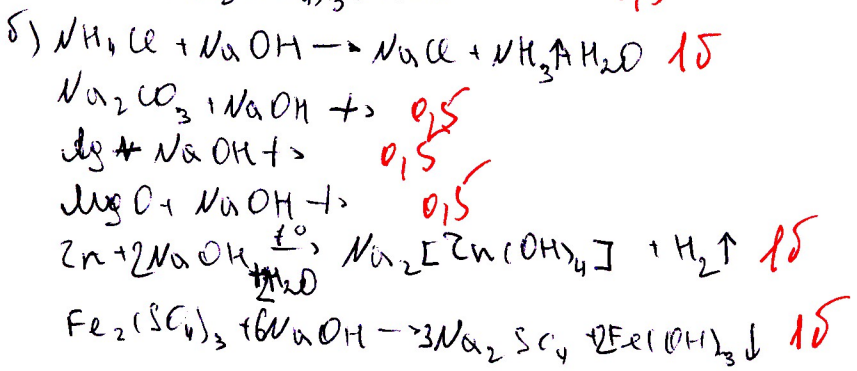 б) NH₄Cl + NaOH → NaCl + NH₃↑ + H₂O 1б
Na₂CO₃ + NaOH ↛ 0,5
Ag + NaOH ↛ 0,5
MgO + NaOH ↛ 0,5
Zn + 2NaOH + 2H₂O t°→ Na₂[Zn(OH)₄] + H₂↑ 1б
Fe₂(SO₄)₃ + 6NaOH → 3Na₂SO₄ + 2Fe(OH)₃↓ 1б